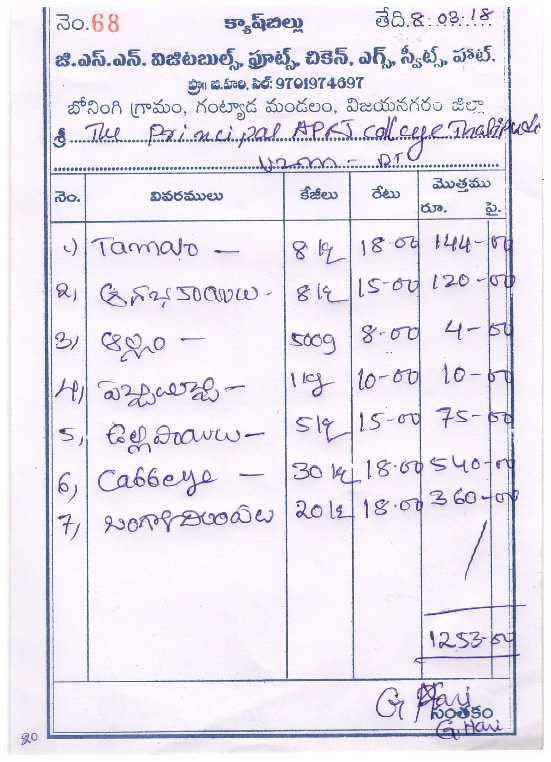 నెం. 68 క్యాష్‌బిల్లు తేది. 8-03-18
జి.ఎస్.ఎన్. విజిటబుల్స్, ఫ్రూట్స్, చికెన్, ఎగ్స్, స్వీట్స్, హాట్.
ప్రొ॥ జి.హరి, సెల్: 9701974697
బోనింగి గ్రామం, గంట్యాడ మండలం, విజయనగరం జిల్లా
శ్రీ The Principal APRJ college Thatipudi
VZM - DT
నెం. వివరములు కేజీలు రేటు మొత్తము
రూ. పై.
1) Tamato - 8 kg 18.00 144-00
2) 8 kg 15-00 120-00
3) అల్లం - 500g 8.00 4-00
4) 1 kg 10-00 10-00
5) ఉల్లిపాయలు - 5 kg 15-00 75-00
6) Cabbeye - 30 kg 18.00 540-00
7) బంగాళదుంపలు 20 kg 18.00 360-00
1253-00
G Hari
సంతకం
G. Hari
20